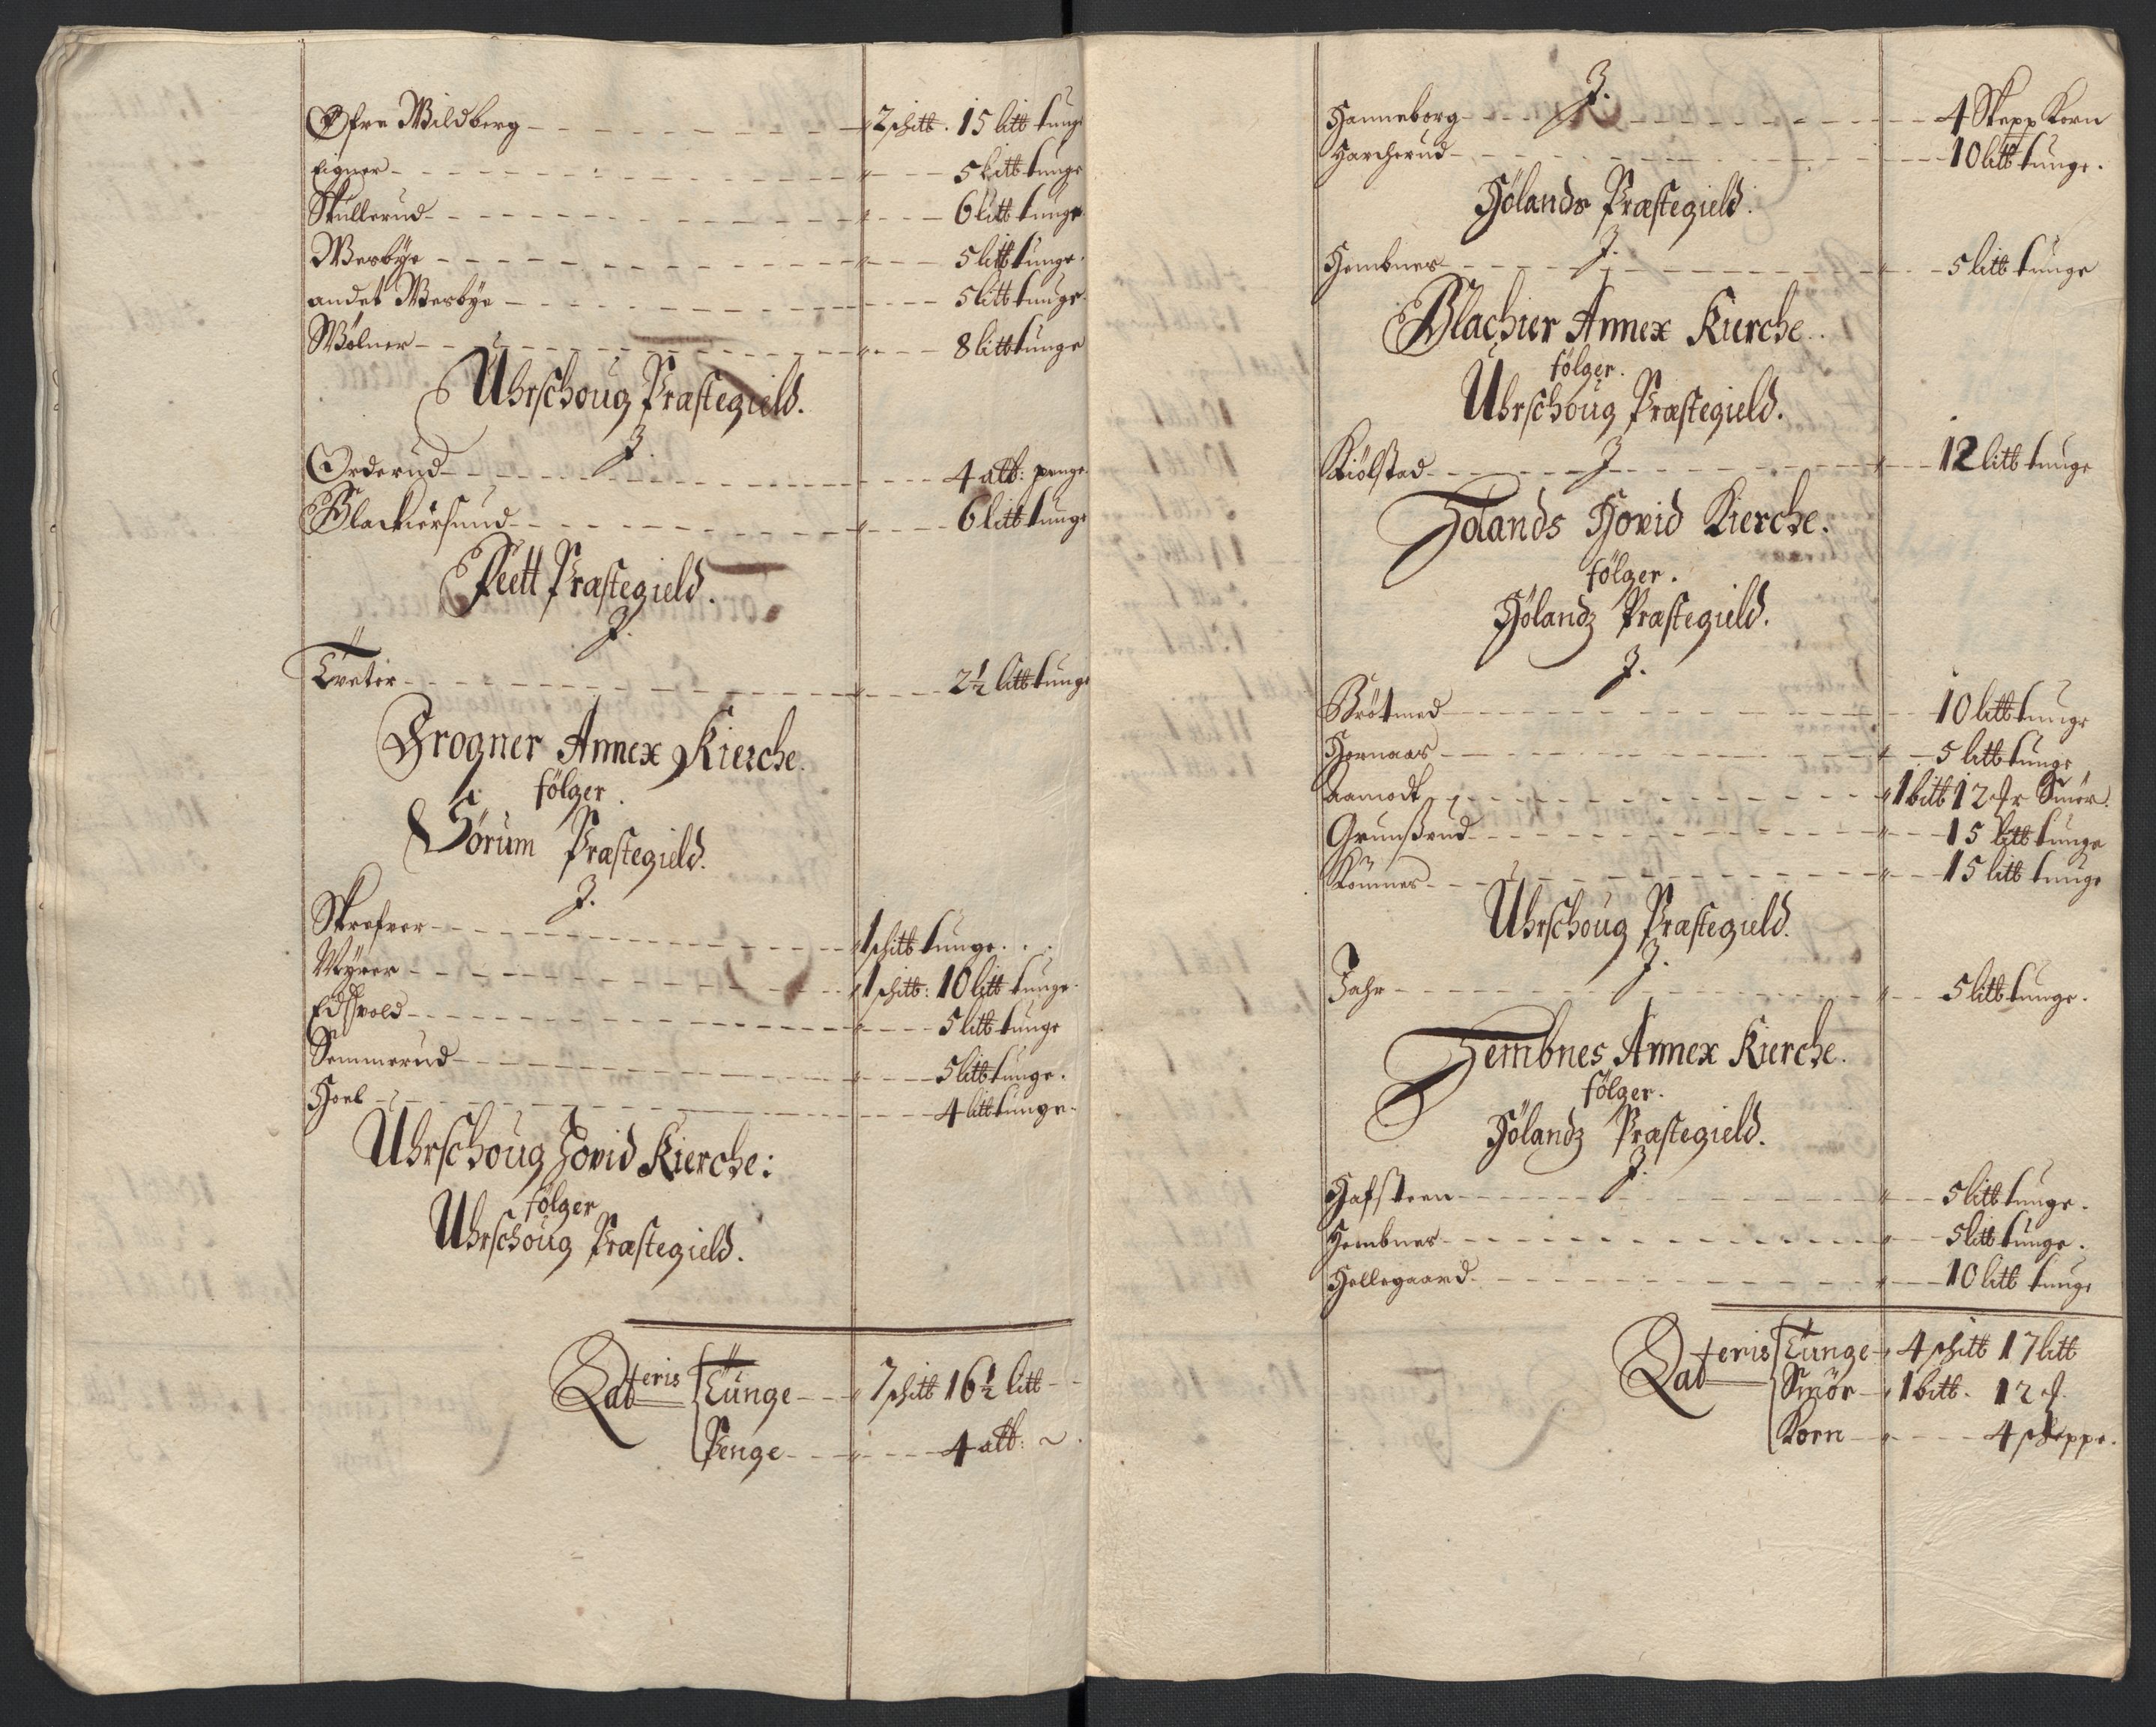 Øfre Wildberg - 2 schitt. 15 litt tunge
Eigner - 5 litt tunge
Skullerud - 6 litt tunge
Wesbÿe - 5 litt tunge.
andet Wesbÿe - 5 litt tunge.
Wølner - 8 litt tunge
Uhrschoug Præstegield.
J.
Orderud - 4 alb: penge
Blackiersund - 6 litt tunge
Feett Præstegield.
J.
Tveter - 2½ litt tunge
Frogner Annex Kierche.
følger.
Sørum Præstegield.
J.
Skrefver - 1 schitt tunge.
Mÿrer - 1 schitt: 10 litt tunge.
Edsvold - 5 litt tunge
Semmerud - 5 litt tunge.
Hoel - 4 litt tunge.
Uhrschoug Hovid Kierche:
følger
Uhrschoug Præstegield.
Lateris Tunge - 7 schitt 16½ litt
Penge - 4 alb:
J.
Hanneborg - 4 Skepp Korn
Harcherud - 10 litt tunge.
Hølands Præstegield.
J.
Hembnes - 5 litt tunge
Blachier Annex Kierche.
følger.
Uhrschoug Præstegield.
J
Kiølstad - 12 litt tunge
Hølands Hovid Kierche.
følger.
Hølandz Præstegield.
J.
Brøtmed - 10 litt tunge
Hornaas - 5 litt tunge
Aamodt - 1 bitt 12 Smør.
Grunßrud - 15 litt tunge
- 15 litt tunge
Uhrschoug Præstegield.
J.
Jahr - 5 litt tunge.
Hembnes Annex Kierche.
følger.
Hølandz Præstegield.
J.
Hafsteen - 5 litt tunge.
Hembnes - 5 litt tunge.
Hellegaard - 10 litt tunge
Lateris Tunge - 4 schitt 17 litt
Smør - 1 bitt. 12
Korn - 4 skeppe.